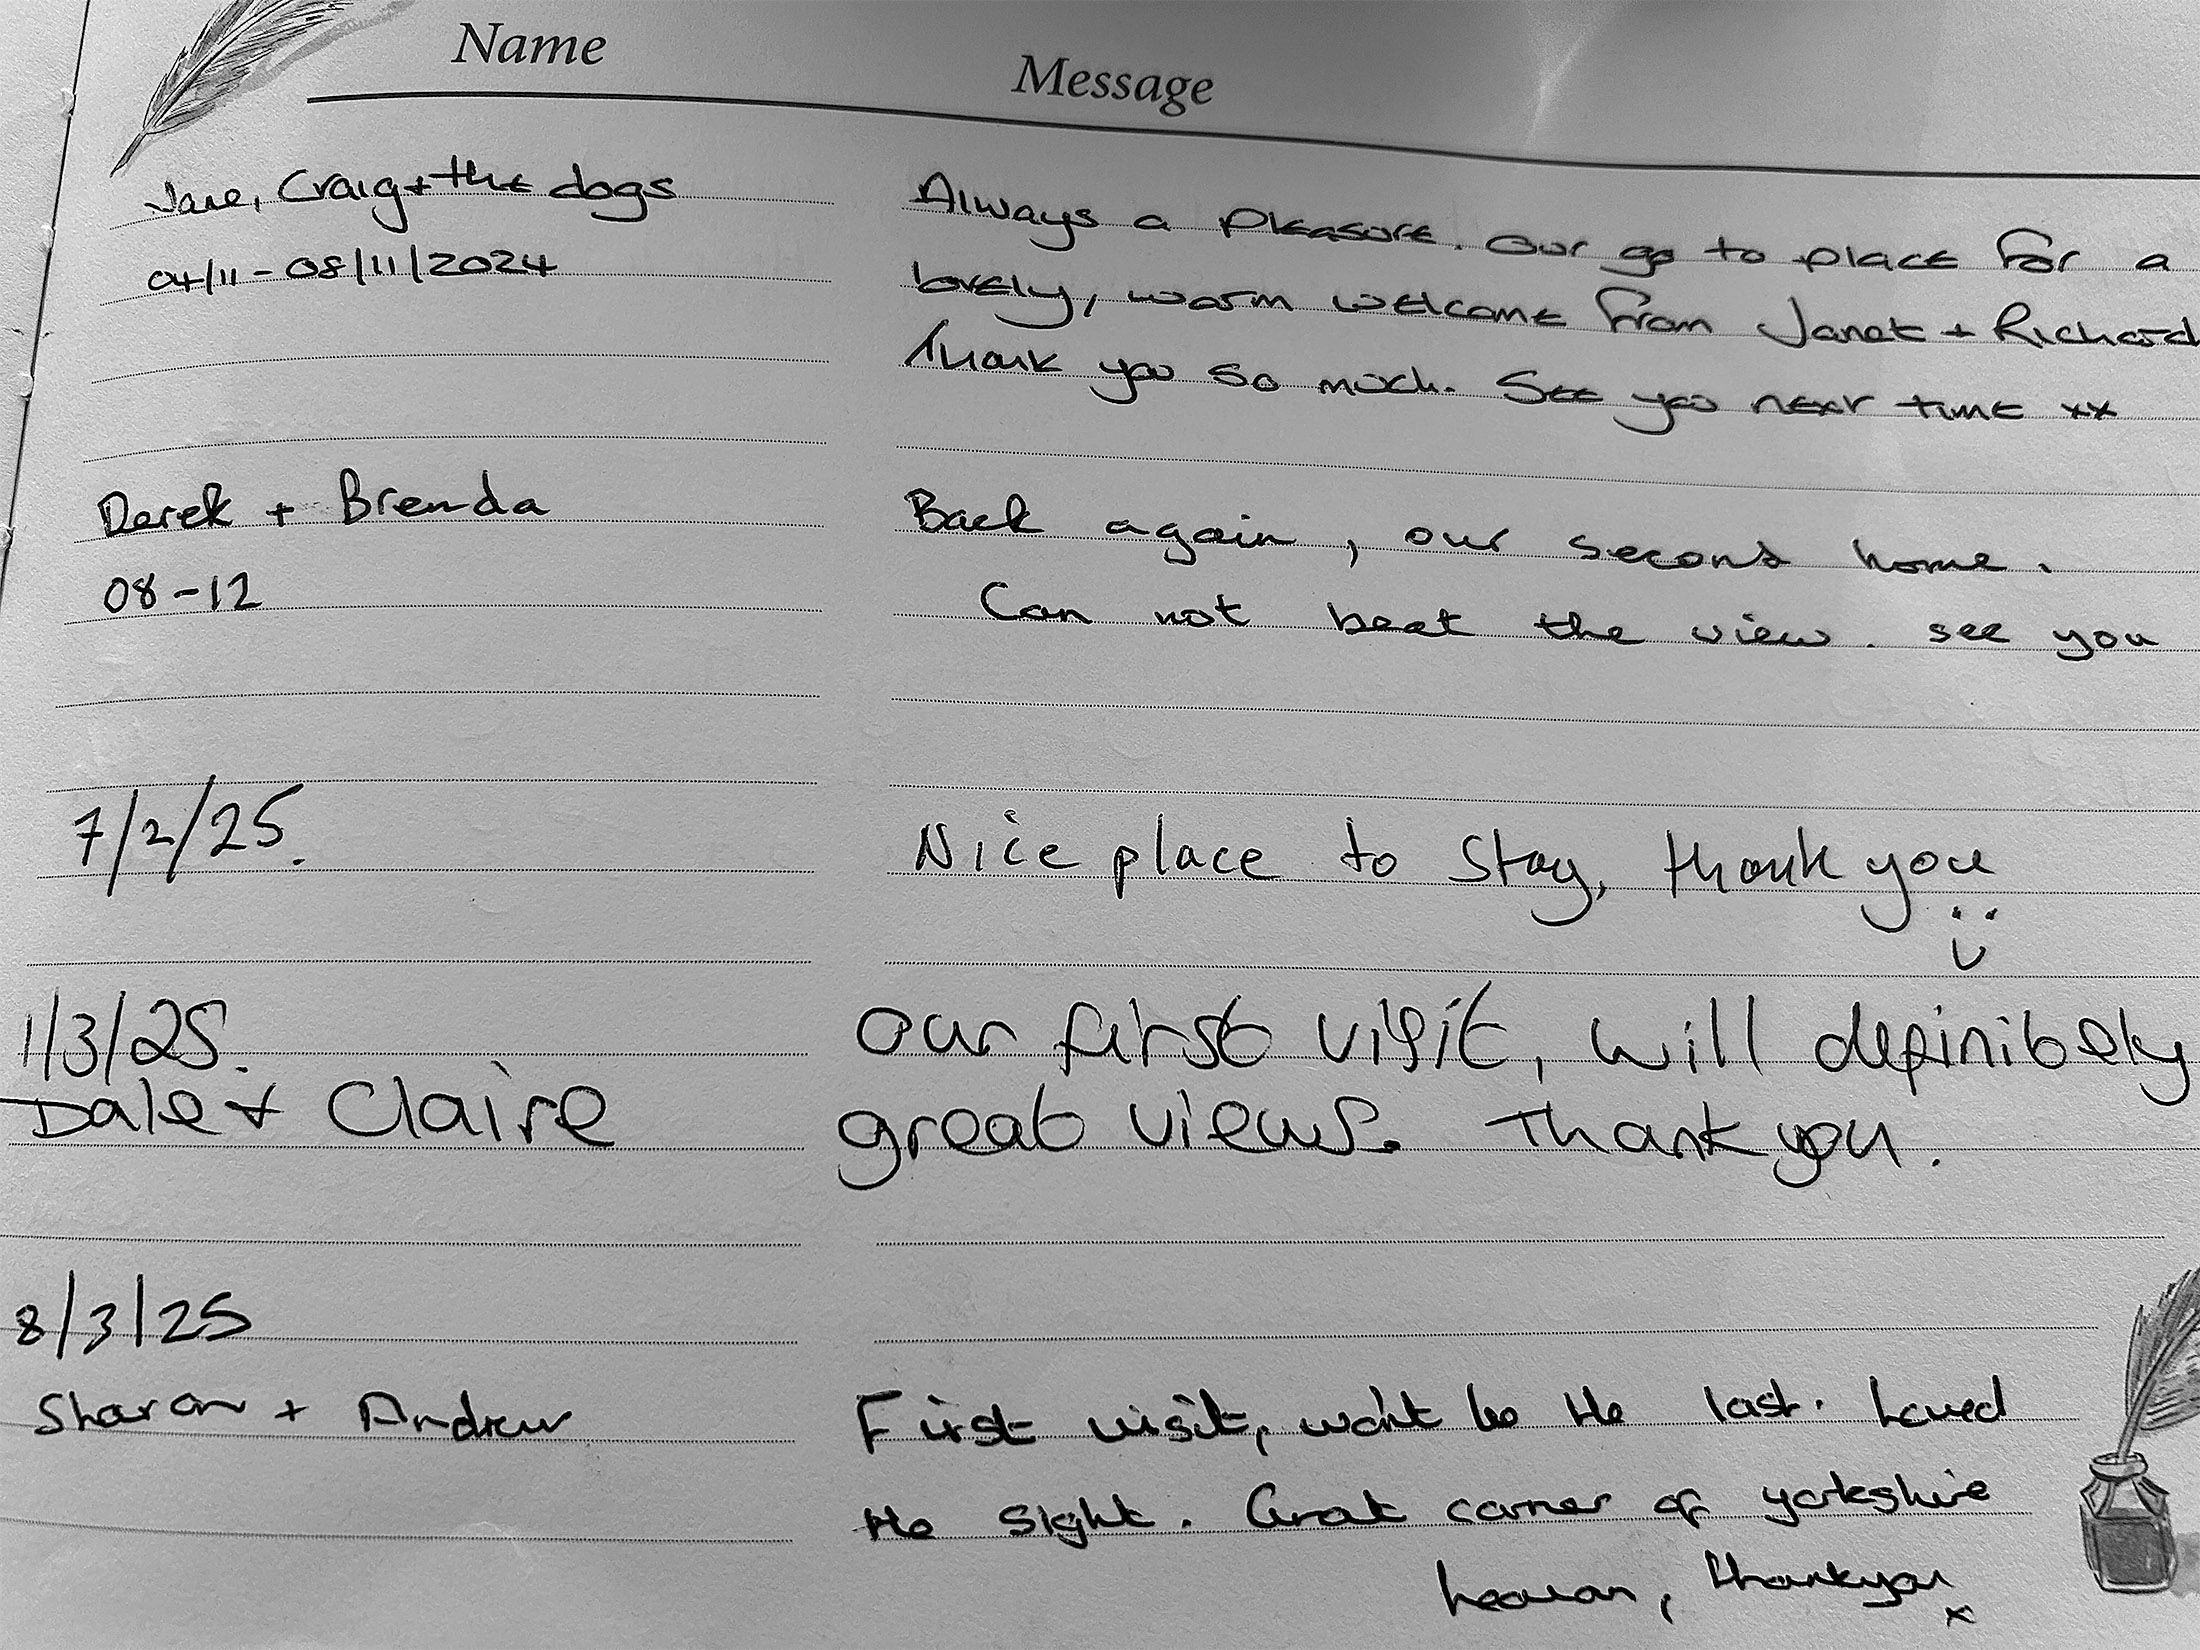 Name Message
Jane, Craig + the dogs Always a pleasure. Our go to place for a
04/11 - 08/11/2024 lovely, warm welcome from Janet + Richard
Thank you so much. See you next time xx
Derek + Brenda Back again, our second home.
08 - 12 Can not beat the view. see you
7/2/25. Nice place to Stay, thank you
1/3/25. Our first visit, will definitely
Dale + Claire great views. Thank you.
8/3/25
Sharon + Andrew First visit, won't be the last. Loved
the sight. Great corner of yorkshire
heaven, thankyou x